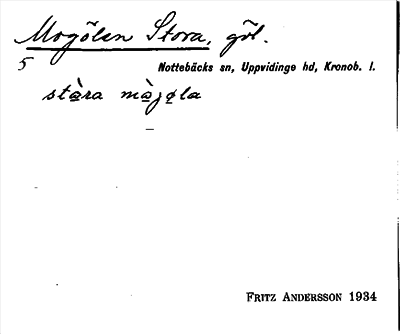 Mogölen Stora, göl.
5
Nottebäcks sn, Uppvidinge hd, Kronob. l.
stàra màjøla
FRITZ ANDERSSON 1934